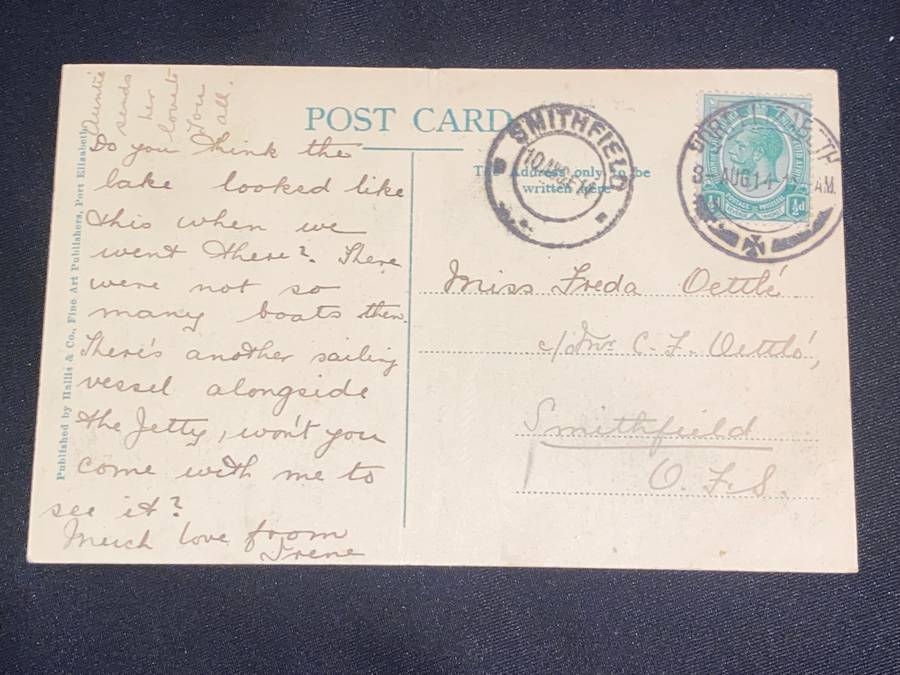 Auntie
sends
her
love to
you
all.
POST CARD
Do you think the
lake looked like
this when we
went there? There
were not so
many boats then.
There's another sailing
vessel alongside
the Jetty, won't you
come with me to
see it?
Much love from
Irene
Published by Hallis & Co., Fine Art Publishers, Port Elizabeth
The Address only to be
written here
SMITHFIELD
10 AUG
PORT ELIZABETH
AUG 14 AM
½d ½d
Miss Freda Oettlé
C. F. Oettlé,
Smithfield
O.F.S.